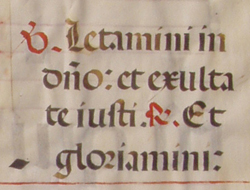 ℣. Letamini in
dño: et exulta
te iusti. ℟. Et
gloriamini: